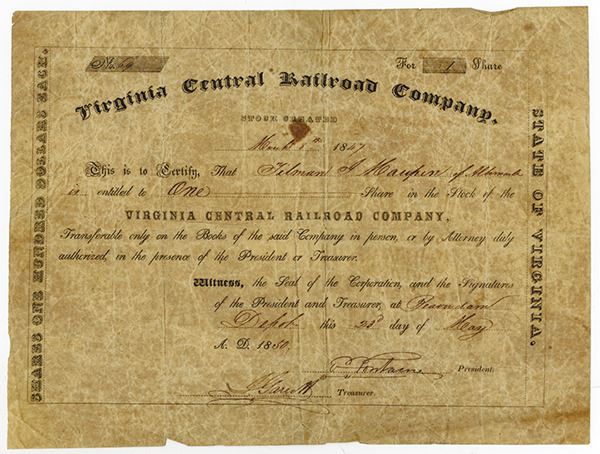 No. 59
For 1 Share
Virginia Central Railroad Company.
STOCK CREATED
March 5th 1847
This is to Certify, That Tilman J Maupin of Albemarle
is entitled to One Share in the Stock of the
VIRGINIA CENTRAL RAILROAD COMPANY,
Transferable only on the Books of the said Company in person, or by Attorney duly
authorized, in the presence of the President or Treasurer.
Witness, the Seal of the Corporation, and the Signatures
of the President and Treasurer, at Beaverdam
Depot this 23d day of May
A. D. 1850.
Fontaine President.
Treasurer.
SHARES ONE HUNDRED DOLLARS EACH.
STATE OF VIRGINIA.